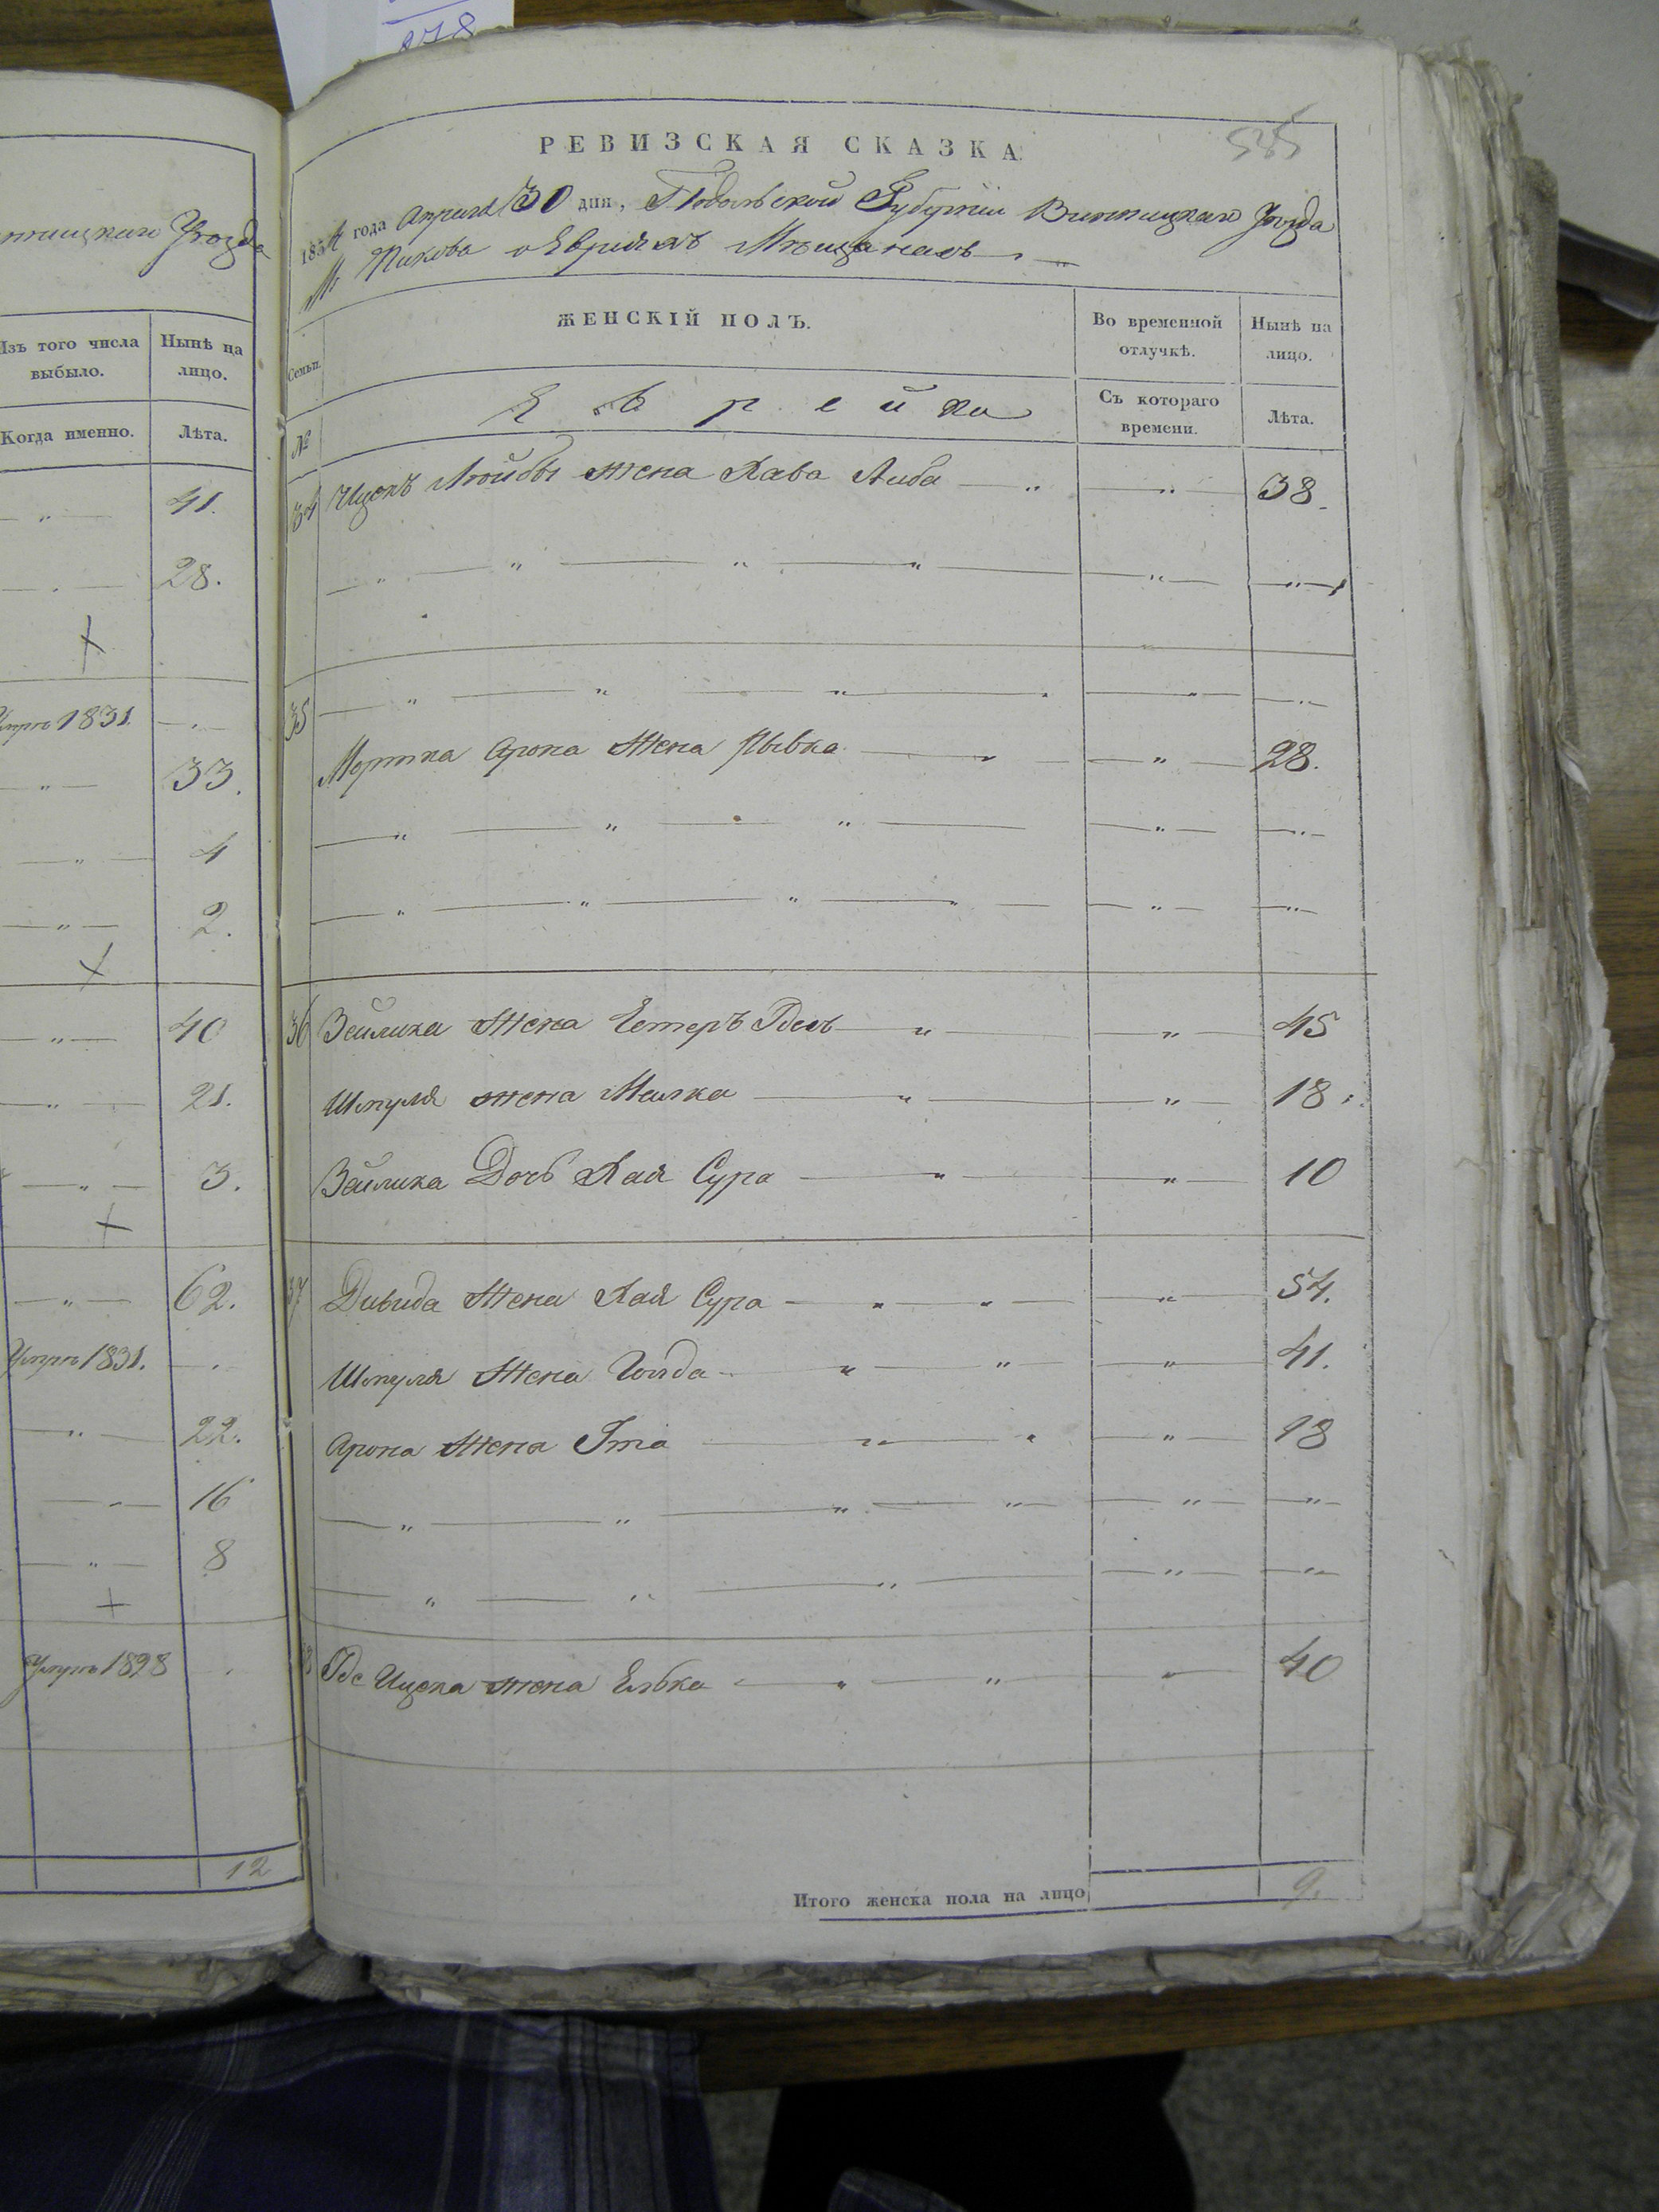 278
нницкаго Уѣзда
Изъ того числа выбыло.
Нынѣ на лицо.
Когда именно.
Лѣта.
41.
28.
Умръ 1831.
33.
4
2.
40
21.
3.
62.
Умръ 1831.
22.
16
8
12
585
РЕВИЗСКАЯ СКАЗКА.
1834 года Апреля 30 дня, Подольской Губерніи Винницкаго Уѣзда
М. Пикова о Евреяхъ Мѣщанахъ
Семьи.
ЖЕНСКІЙ ПОЛЪ.
Во временной отлучкѣ.
Нынѣ на лицо.
№
Еврейка
Съ котораго времени.
Лѣта.
34 Ицокъ Лейбы жена Хава Либа 38.
35
Мортка Арона Жена Рывка 28.
36 Зейлика Жена Естеръ 45
Шмуля жена Малка 18.
Зейлика Дочь Хая Сура 10
37 Давида Жена Хая Сура 54.
Шмуля Жена Голда 41.
Арона Жена Ита 18
Ицека жена Елька 40
Итого женска пола на лицо 9.